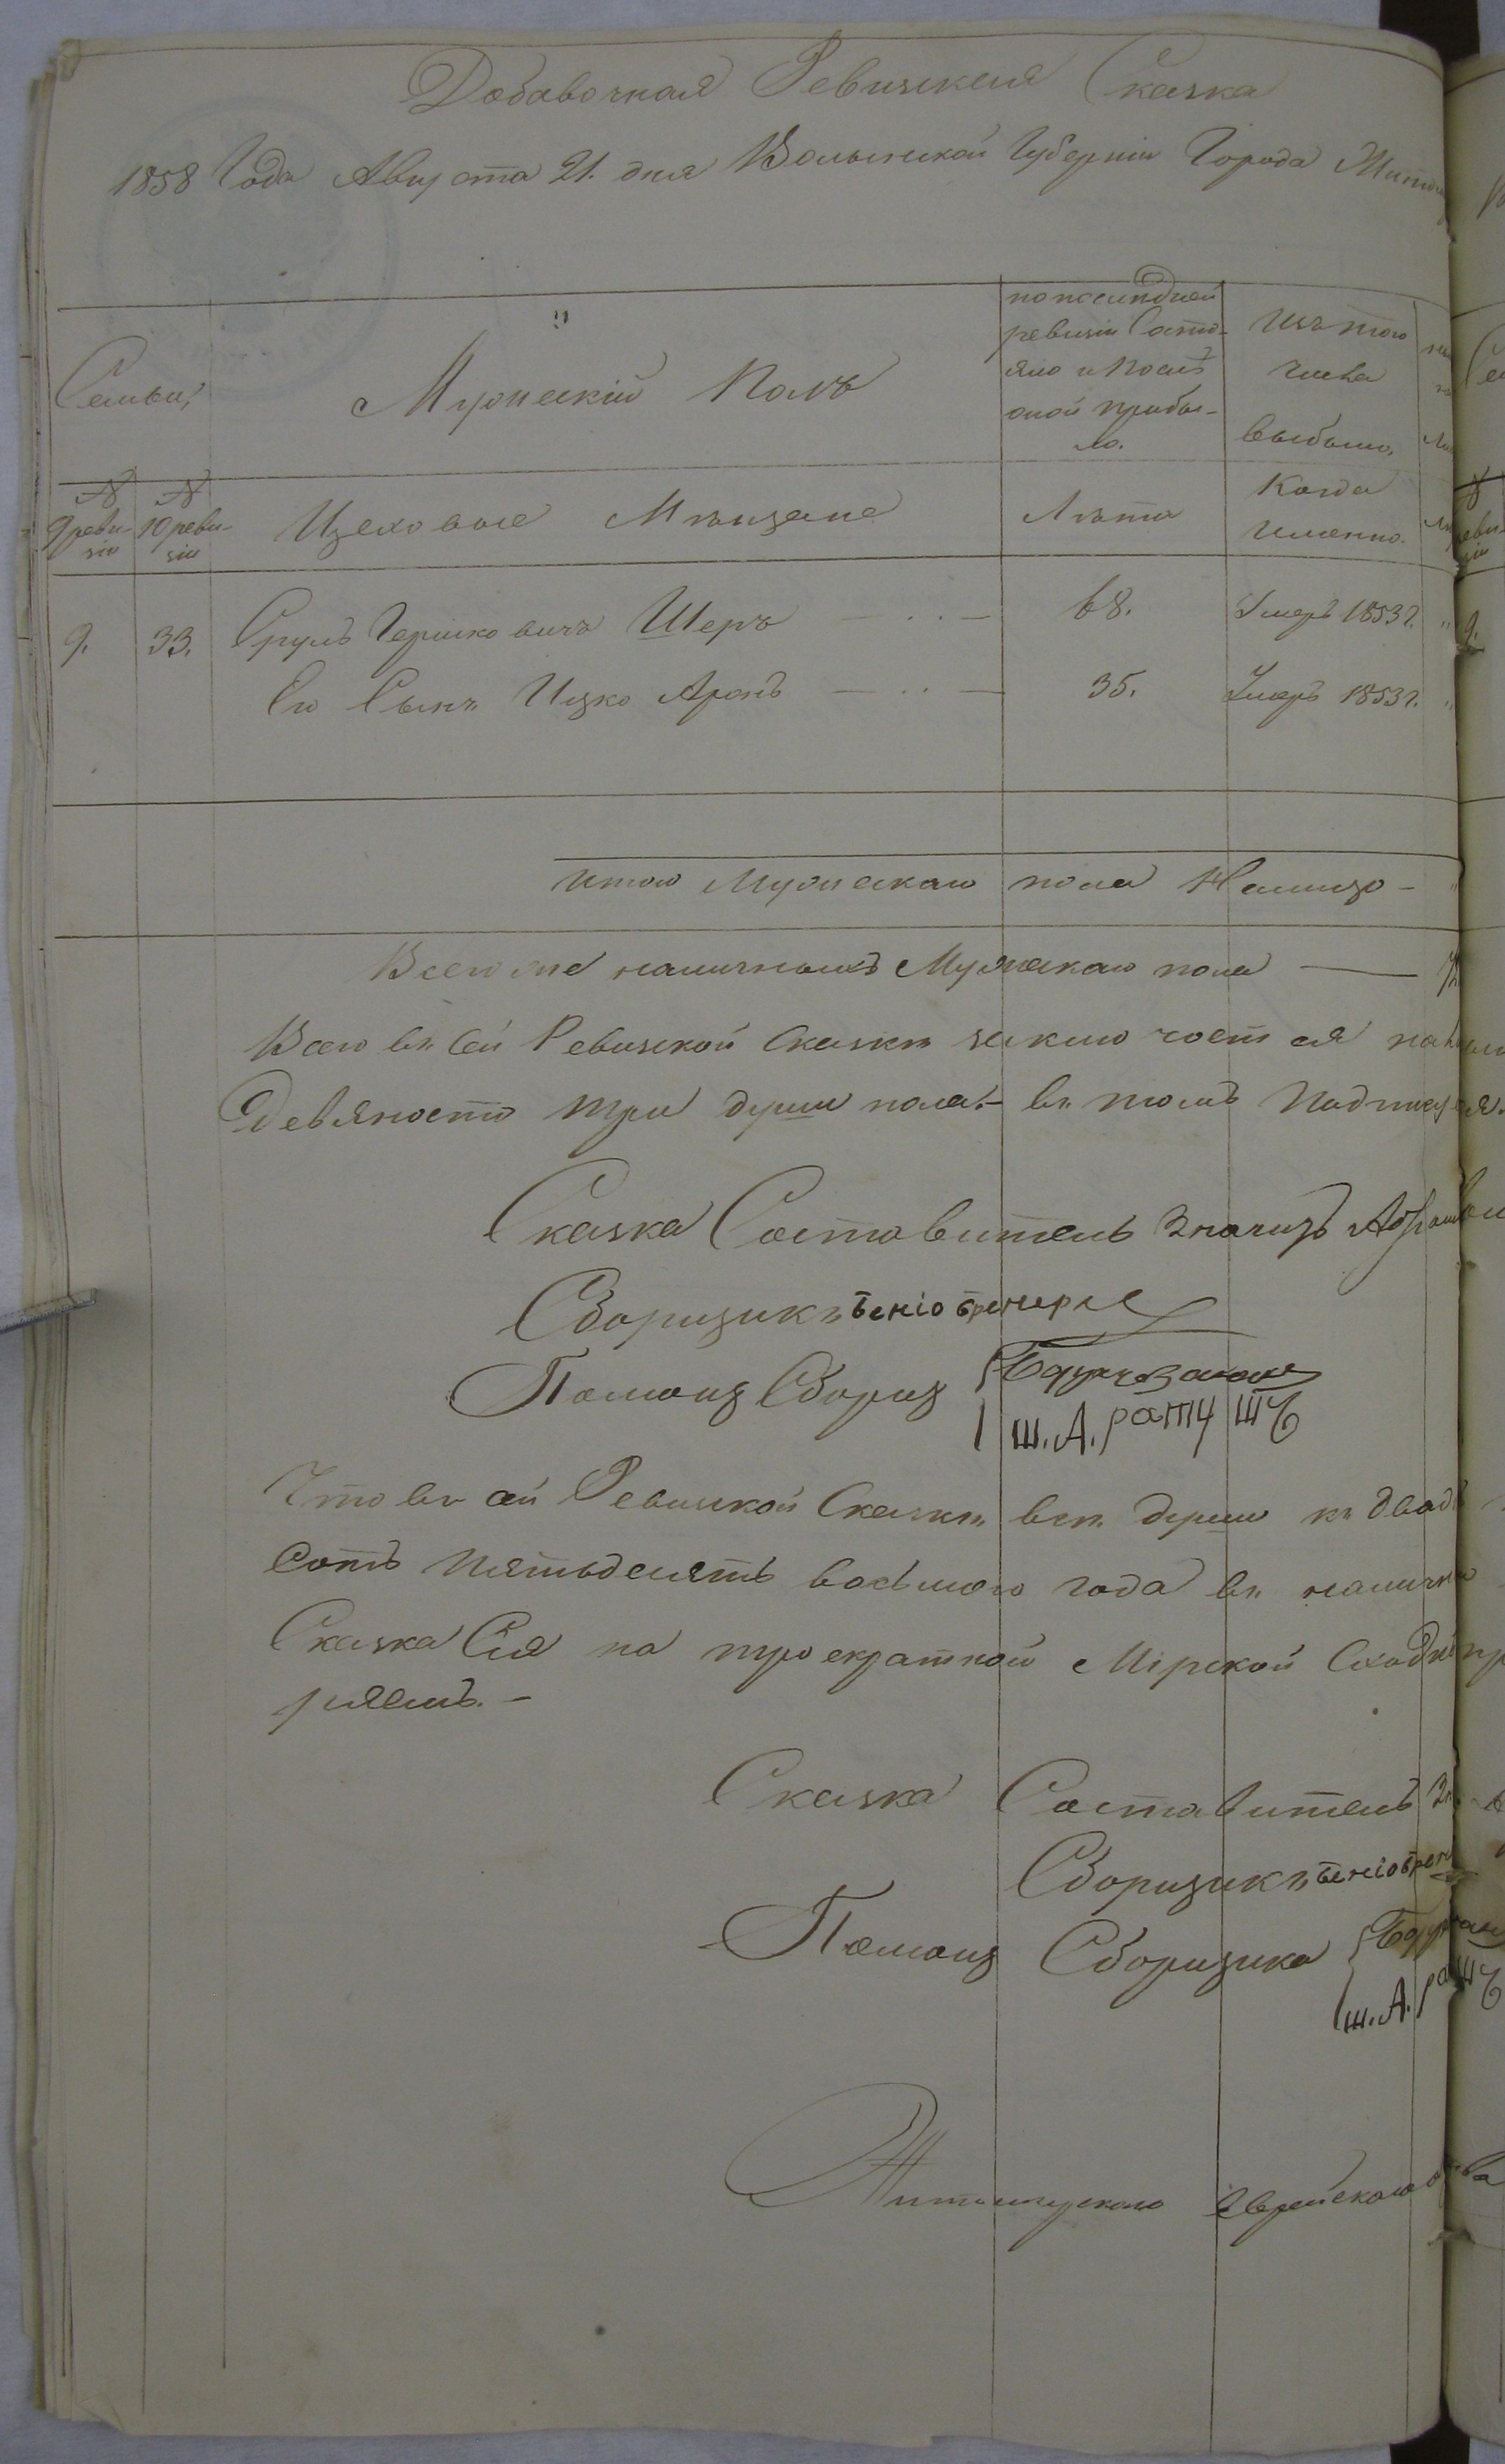 Добавочная Ревизская Сказка
1858 Года Августа 21. дня Волынской Губерніи Города Житом
Семьи,
Мужескій Полъ
по последней
ревизіи Состо-
яло и после
оной прибы-
ло.
Изъ того
числа
выбыло,
№
9 реви-
зіи
№
10 реви-
зіи
Цеховые Мѣщане
Лѣта
Когда
именно.
9. 33. Срулъ Гершковичъ Шеръ — .. — 68. Умеръ 1853 г. "
Его Сынъ Ицко Аронъ — .. — 35. Умеръ 1853 г. "
Итого Мужескаго пола На лицо -
Всего же наличныхъ Мужескаго пола —
Всего въ Сей Ревизской Сказкѣ заключается
Девяносто три души пола:- въ томъ Подписуемся.
Сказка Составитель
Сборщикъ Беніо
Помощ Сборщ
Ш. А.
Что въ сей Ревизской Сказкѣ всѣ души къ
сотъ пятьдесятъ восьмого года въ
Сказка Сія на троекратной Мірской Сходкѣ
ряемъ.-
Сказка Составитель
Сборщикъ Беніо
Помощ Сборщика
Ш. А.
Житомирскаго Еврейскаго